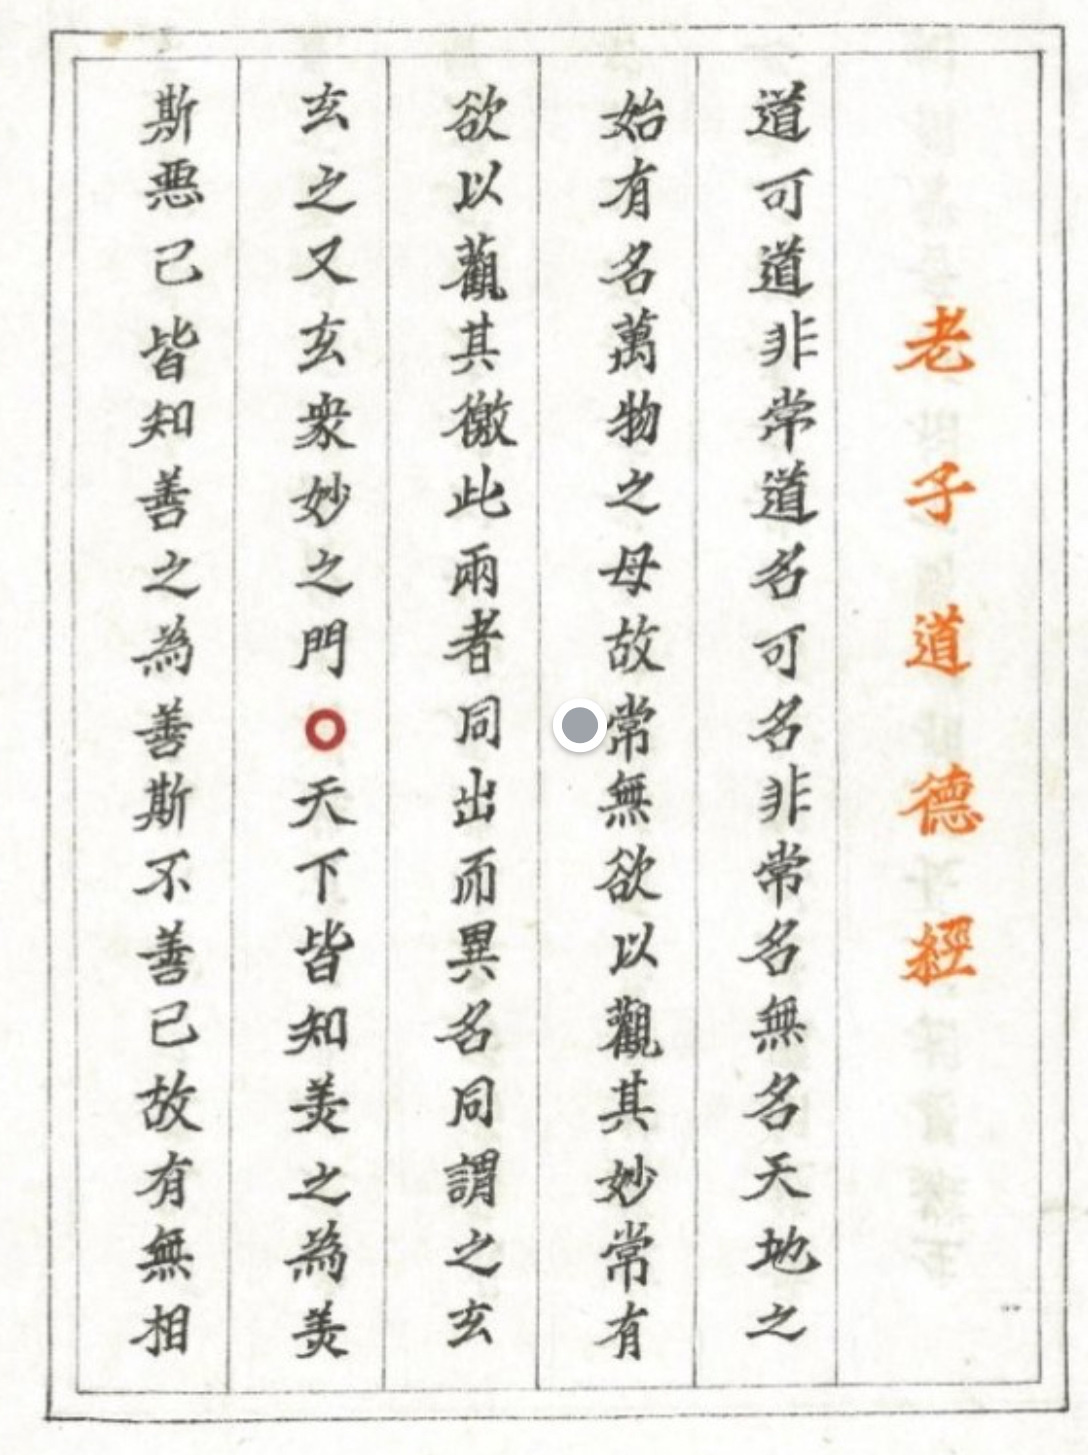 老子道德經
道可道非常道名可名非常名無名天地之
始有名萬物之母故常無欲以觀其妙常有
欲以觀其徼此兩者同出而異名同謂之玄
玄之又玄衆妙之門○天下皆知美之為美
斯惡已皆知善之為善斯不善已故有無相